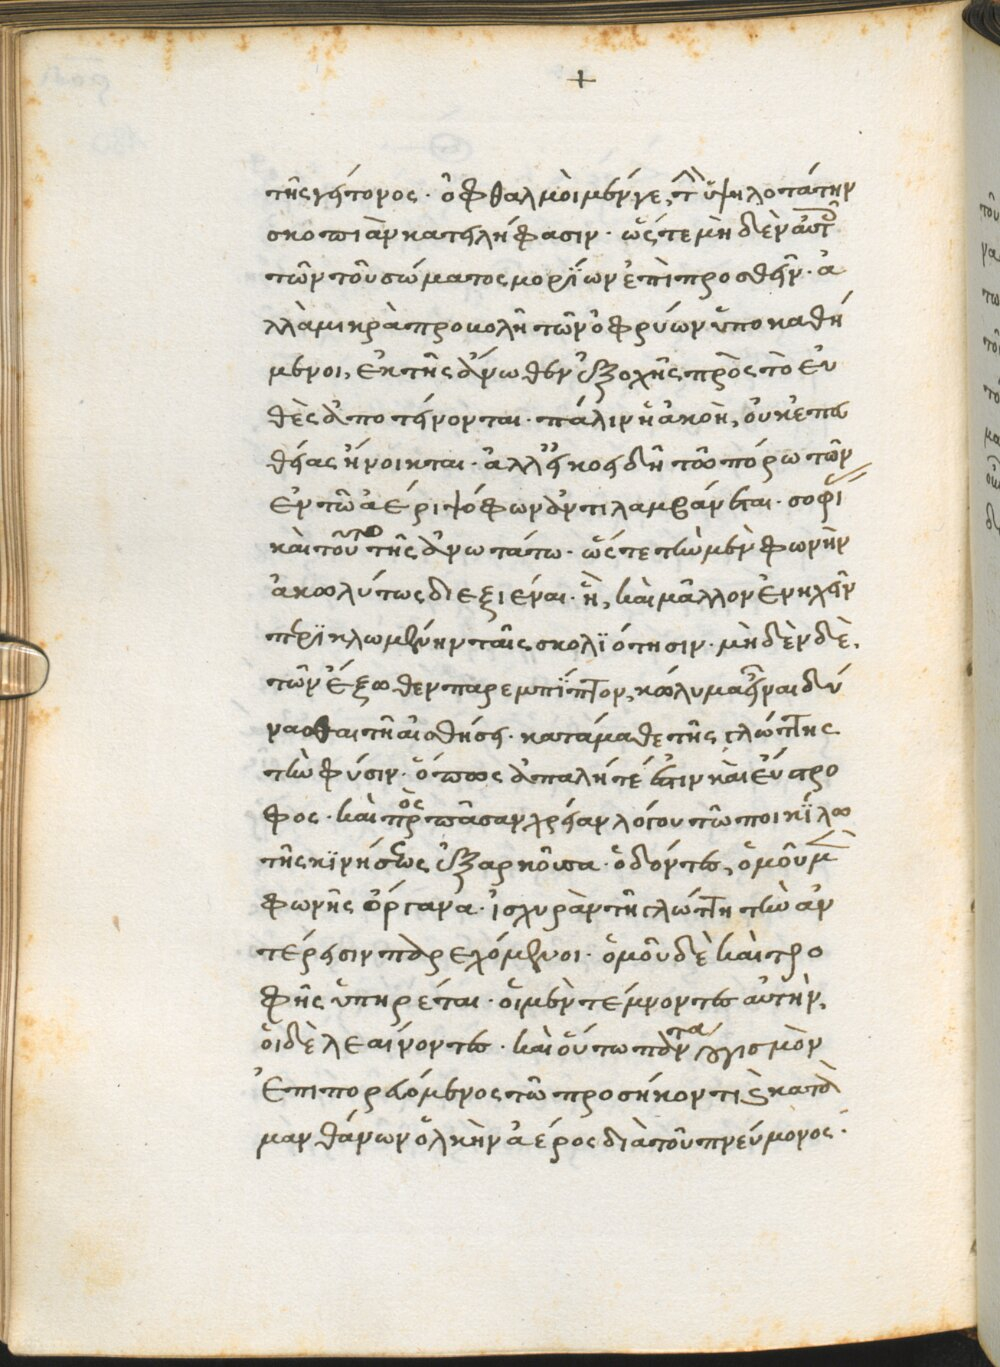 +
τῆς γείτονος· ὀφθαλμοὶ μέν γε, τὴν ὑψηλοτάτην
σκοπιὰν κατειλήφασιν· ὥστε μὴδὲν αὐτοῖς
τῶν τοῦ σώματος μορίων ἐπιπροσθεῖν· ἀ
λλὰ μικρὰ προβολῆ τῶν ὀφρύων ὑποκαθή
μενοι, ἐκ τῆς ἄνωθεν ἐξοχῆς πρὸς τὸ εὐ
θὲς ἀποτείνονται· πάλιν ἡ ἀκοὴ, οὐκ ἐπ' εὐ
θείας ἤνοικται· ἀλλ' ἑλικοειδεῖ τῶ πόρω τῶν
ἐν τῶ ἀέρι ψόφων ἀντιλαμβάνεται· σοφί
καὶ τοῦτο τῆς ἀνωτάτω· ὥστε τὴν μὲν φωνὴν
ἀκωλύτως διεξιέναι· ἢ, καὶ μᾶλλον ἐνηχεῖν
περϊκλωμένην ταῖς σκολϊότησιν· μὴδὲν δὲ,
τῶν ἔξωθεν παρεμπίπτον, κώλυμα εἶναι δύ
νασθαι τῆ αἰσθήσει· κατάμαθε τῆς γλώττης
τὴν φύσιν· ὅπως ἁπαλή τέ ἐστιν καὶ εὔστρο
φος· καὶ πρὸς πᾶσαν χρείαν λόγου τῶ ποικίλω
τῆς κϊνήσεως ἐξαρκοῦσα· ὀδόντες, ὁμοῦ μὲν
φωνῆς ὄργανα· ἰσχυρὰν τῆ γλώττη τὴν ἀν
τέρεισιν παρεχόμενοι· ὁμοῦ δὲ καὶ τρο
φῆς ὑπηρέται· οἱ μὲν τέμνοντες αὐτὴν,
οἱ δὲ λεαίνοντες· καὶ οὕτω πάντα λογισμὸν
ἐπιπορευόμενος τῶ προσήκοντι καὶ κατα
μανθάνων ὁλκὴν ἀέρος διὰ τοῦ πνεύμονος·